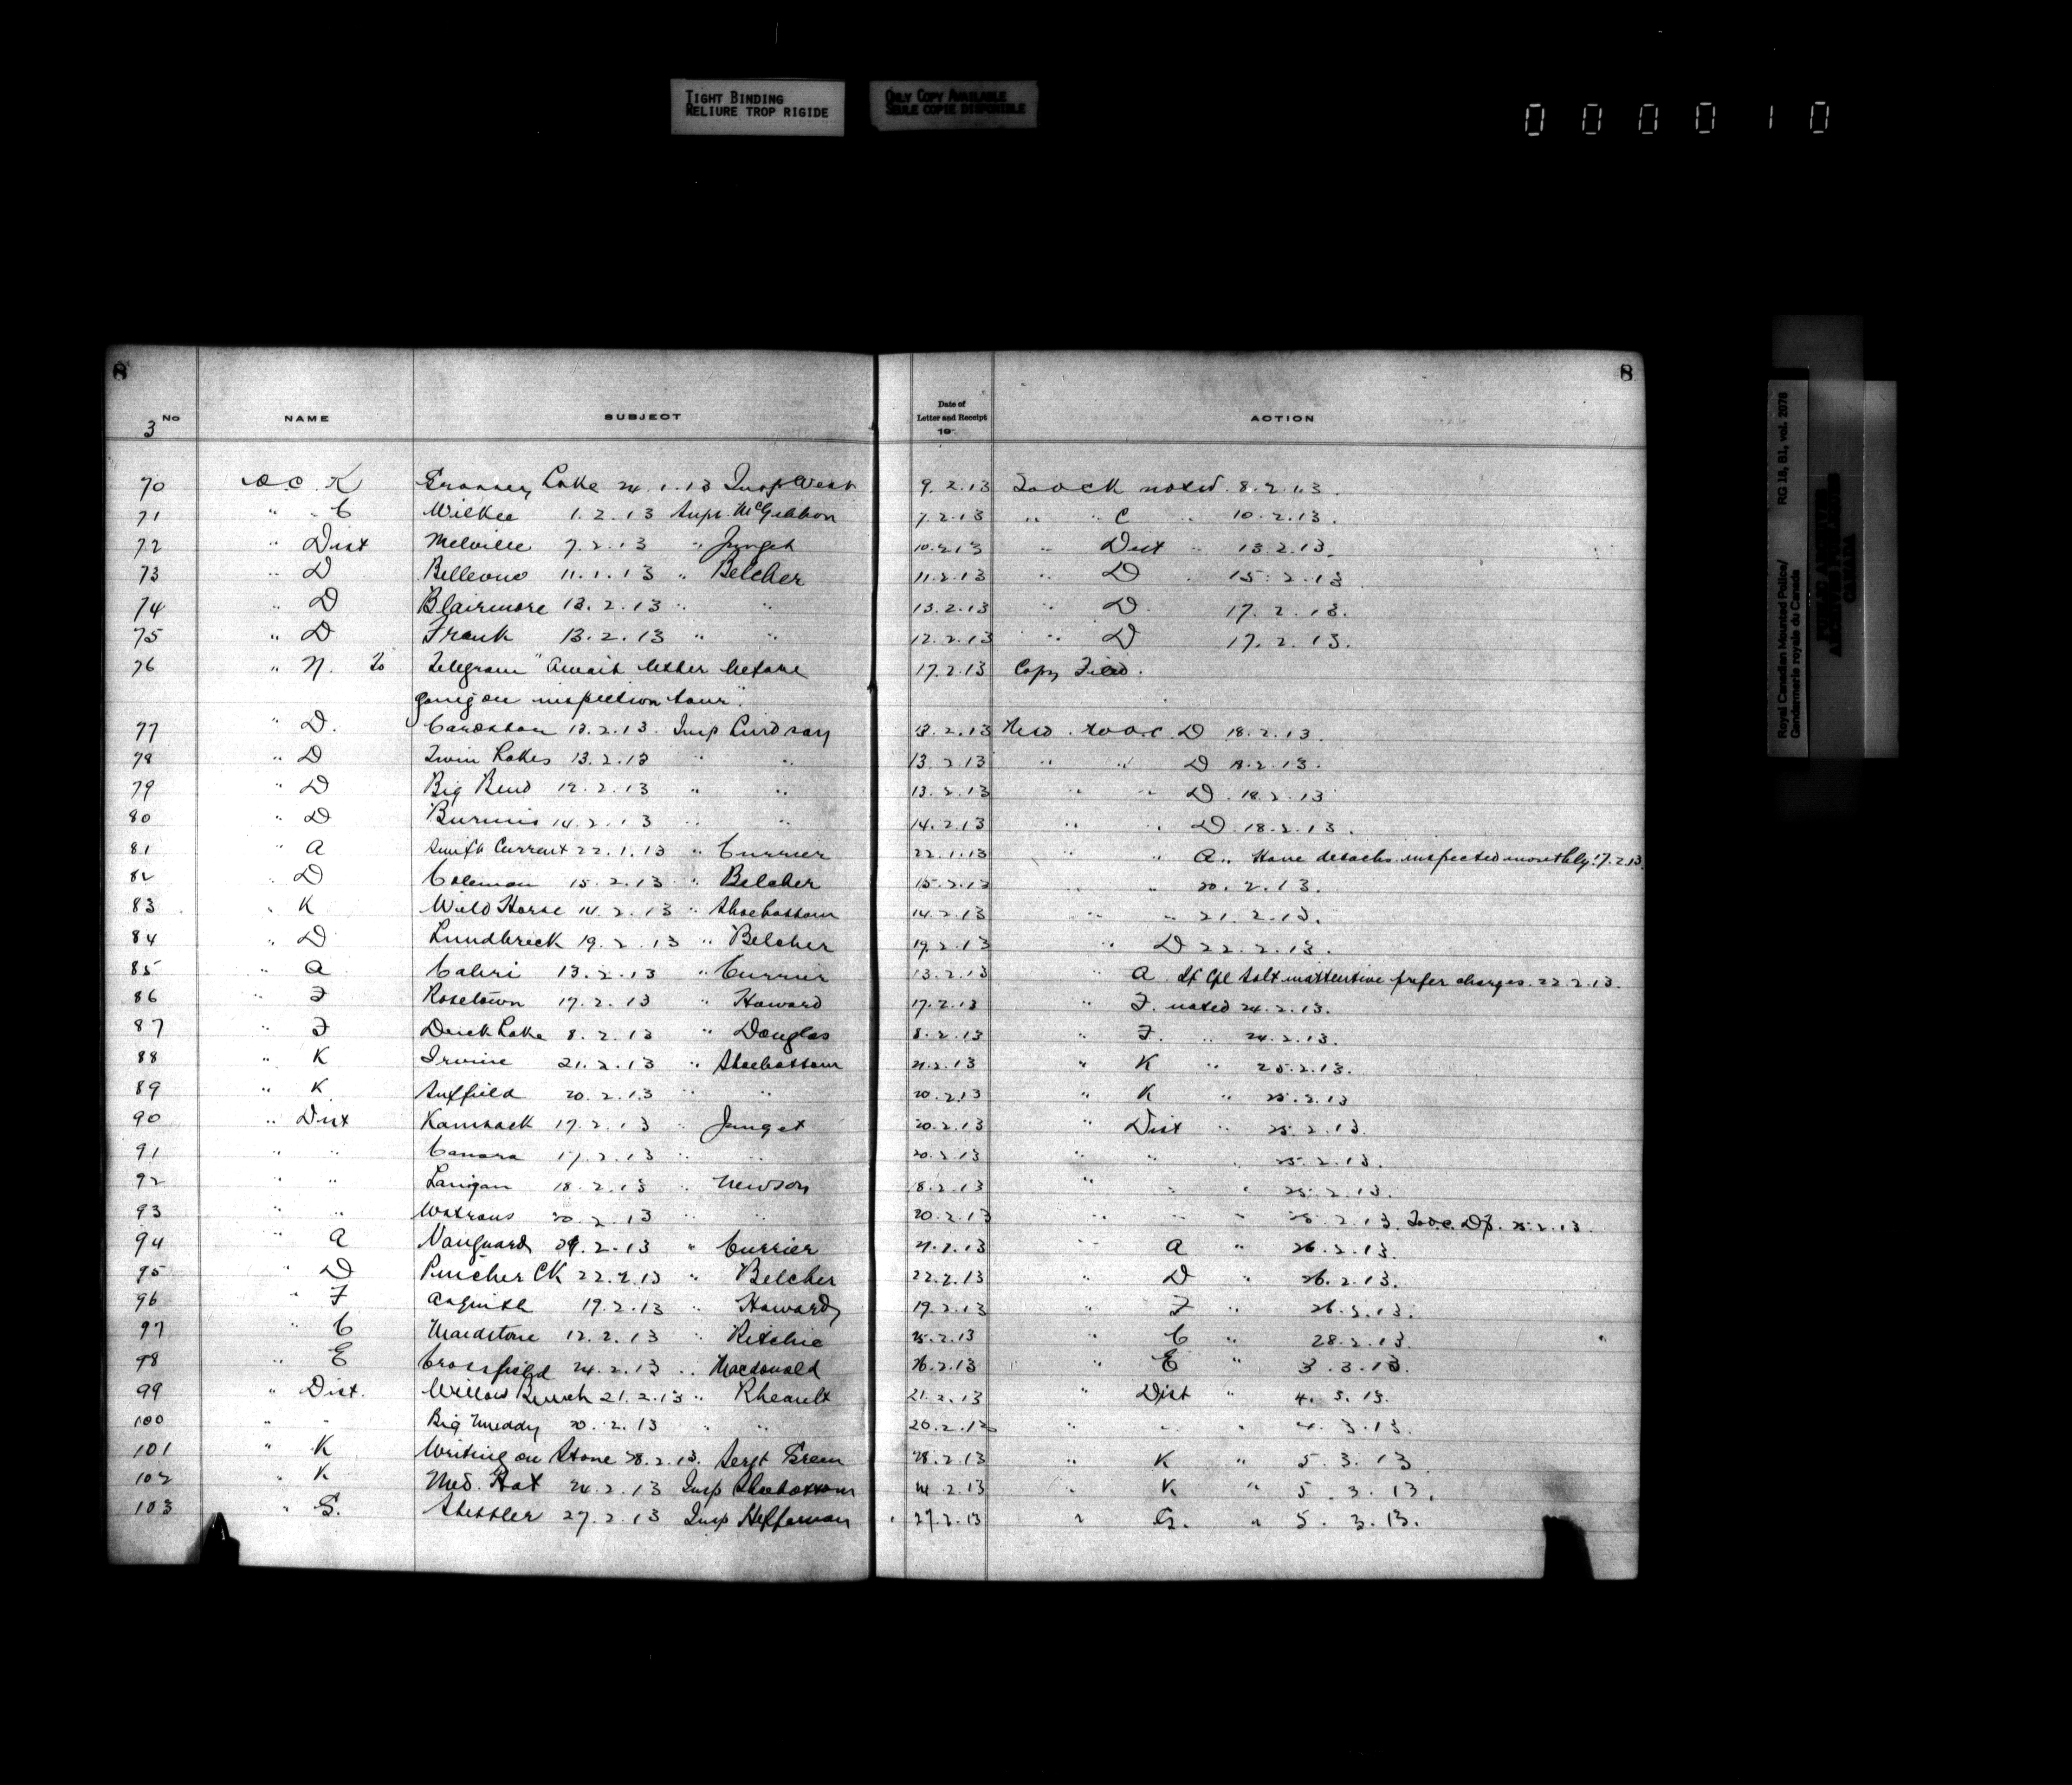 TIGHT BINDING
RELIURE TROP RIGIDE
ONLY COPY AVAILABLE
SEULE COPIE DISPONIBLE
0 0 0 0 1 0
8 8
No NAME SUBJECT Date of Letter and Receipt 19 ACTION
3
70 O.C. K Grassey Lake 24.1.13 Insp West 9.2.13 To O C K noted 8.2.13.
71 " " C Wilkie 1.2.13 Supt. McGibbon 7.2.13 " " C " 10.2.13.
72 " Dist Melville 7.2.13 " Junget 10.2.13 " Dist " 13.2.13.
73 " D Bellevue 11.1.13 " Belcher 11.2.13 " D " 15.2.13
74 " D Blairmore 13.2.13 " " 13.2.13 " D 17.2.13.
75 " D Frank 13.2.13 " " 12.2.13 " D 17.2.13.
76 " N. To Telegram "Await letter before 17.2.13 Copy Filed.
going on inspection tour".
77 " D. Cardston 13.2.13. Insp Lindsay 13.2.13 to O.C. D 18.2.13.
78 " D Twin Lakes 13.2.13 " " 13.2.13 " " D 18.2.13.
79 " D Big Bend 12.2.13 " " 13.2.13 " " D. 18.2.13
80 " D Burmis 14.2.13 " " 14.2.13 " " D 18.2.13.
81 " A Swift Current 22.1.13 " Currier 22.1.13 " " A.. Have detachs. inspected monthly. 17.2.13
82 " D Coleman 15.2.13 " Belcher 15.2.13 " 20.2.13.
83 " K Wild Horse 14.2.13 " Shoebottom 14.2.13 " " 21.2.13.
84 " D Lundbreck 19.2.13 " Belcher 19.2.13 " D 22.2.13.
85 " A Cabri 13.2.13 " Currier 13.2.13 " A. If Cpl Salt inattentive prefer charges. 22.2.13.
86 " F Rosetown 17.2.13 " Howard 17.2.13 " F. noted 24.2.13.
87 " F Duck Lake 8.2.13 " Douglas 8.2.13 " F. " 24.2.13.
88 " K Irvine 21.2.13 " Shoebottom 21.2.13 " K " 25.2.13.
89 " K Suffield 20.2.13 " " 20.2.13 " K " 25.2.13
90 " Dist Kamsack 17.2.13 " Junget 20.2.13 " Dist " 25.2.13.
91 " " Canora 17.2.13 " " 20.2.13 " " " 25.2.13.
92 " " Lanigan 18.2.13 " Newson 18.2.13 " " " 25.2.13.
93 " " Watrous 20.2.13 " " 20.2.13 " " " 25.2.13. To O.C. 25.2.13.
94 " A Vanguard 2.13 " Currier 21.2.13 " A " 26.2.13.
95 " D Pincher CK 22.2.13 " Belcher 22.2.13 " D " 26.2.13.
96 " F Asquith 19.2.13 " Howard 19.2.13 " F " 26.2.13.
97 " C Maidstone 12.2.13 " Ritchie 25.2.13 " C " 28.2.13.
98 " E Crossfield 24.2.13 " Macdonald 26.2.13 " E " 3.3.13.
99 " Dist. Willow Bunch 21.2.13 " Rheault 21.2.13 " Dist " 4.3.13.
100 " " Big Muddy 20.2.13 " " 20.2.13 " " " 4.3.13.
101 " K Writing on Stone 28.2.13. Sergt Green 28.2.13 " K " 5.3.13
102 " K Med. Hat 24.2.13 Insp Shoebottom 24.2.13 " K " 5.3.13.
103 " G. Stettler 27.2.13 Insp Heffernan 27.2.13 " G. " 5.3.13.
Royal Canadian Mounted Police/
Gendarmerie royale du Canada
RG 18, B1, vol. 2078
PUBLIC ARCHIVES
ARCHIVES PUBLIQUES
CANADA